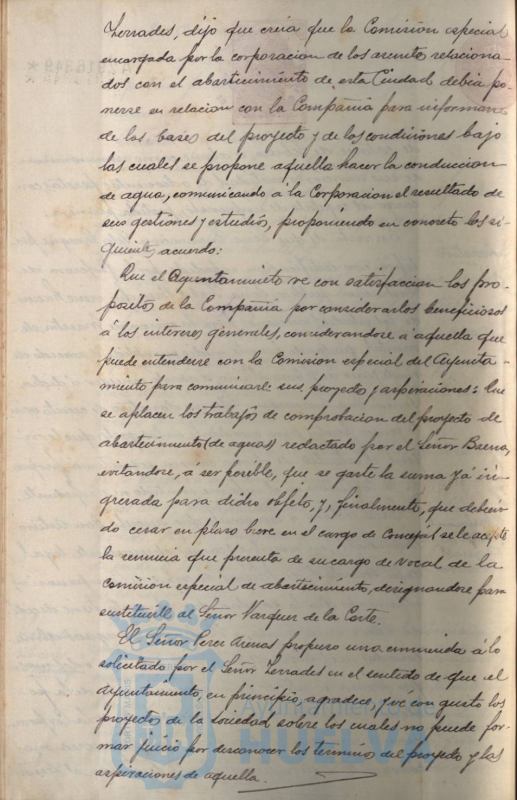 Terrades, dijo que creía que la Comisión especial
encargada por la corporacion de los asuntos relaciona-
dos con el abastecimiento de esta Ciudad debia po-
nerse en relacion con la Compañia para informarse
de las bases del proyecto y de las condiciones bajo
las cuales se propone aquella hacer la conduccion
de agua, comunicando á la Corporacion el resultado de
sus gestiones y estudios, proponiendo en concreto los si-
guientes acuerdo:
Que el Ayuntamiento ve con satisfaccion los pro-
positos de la Compañia por considerarlos beneficiosos
á los intereses generales, considerandose á aquella que
puede entenderse con la Comision especial del Ayunta-
miento para comunicarle sus proyectos y aspiraciones: Que
se aplacen los trabajos de comprobacion del proyecto de
abastecimiento (de aguas) redactado por el Señor
evitandose, á ser posible, que se gaste la suma yá in-
gresada para dicho objeto, y, finalmente, que debien-
do cesar en plazo breve en el cargo de Concejal se le acepte
la renuncia que presenta de su cargo de vocal de la
comision especial de abastecimiento, designandose para
sustituirle al Señor Vazquez de la Corte.
El Señor Perez Arenas propuso una enmienda á lo
solicitado por el Señor Terrades en el sentido de que el
Ayuntamiento, en principio, agradece, y ve con gusto los
proyectos de la sociedad sobre los cuales no puede for-
mar juicio por desconocer los terminos del proyecto y las
aspiraciones de aquella.